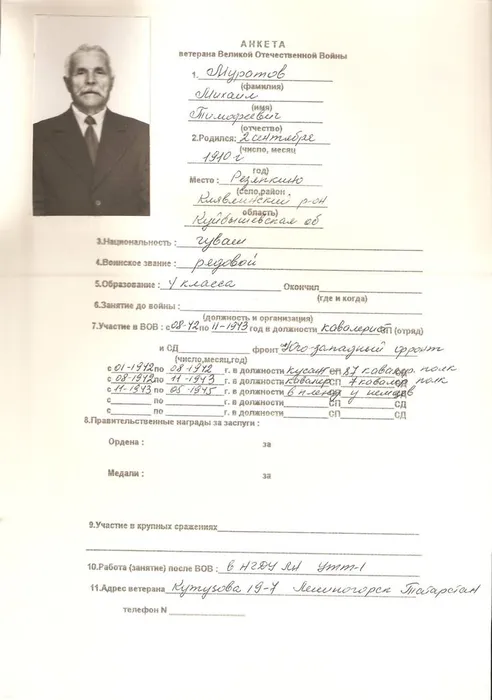 АНКЕТА
ветерана Великой Отечественной Войны
1. Муратов
(фамилия)
Михаил
(имя)
Тимофеевич
(отчество)
2.Родился: 2 сентября
(число, месяц
1910 г
год)
Место : Резяпкино
(село,район ,
Клявлинский р-он
область)
Куйбышевская об
3.Национальность : чуваш
4.Воинское звание : редовой
5.Образование : 4 класса Окончил
(где и когда)
6.Занятие до войны :
(должность и организация)
7.Участие в ВОВ : с 08-42 по 11-1943 год в должности кавалерист СП (отряд)
и СД фронт Юго-западный фронт
(число,месяц,год)
с 01-1942 по 08-1942 г. в должности СП 87 кавалер. полк
с 08-1942 по 11-1943 г. в должности кавалер СП 7 кавалер полк
с 11-1943 по 05-1945 г. в должности в плену у немцев СД
с по г. в должности СП СД
с по г. в должности СП СД
8.Правительственные награды за заслуги :
Ордена : за
Медали : за
9.Участие в крупных сражениях
10.Работа (занятие) после ВОВ : в НГДУ ЛН УТТ-1
11.Адрес ветерана Кутузова 19-7 Лениногорск Татарстан
телефон N